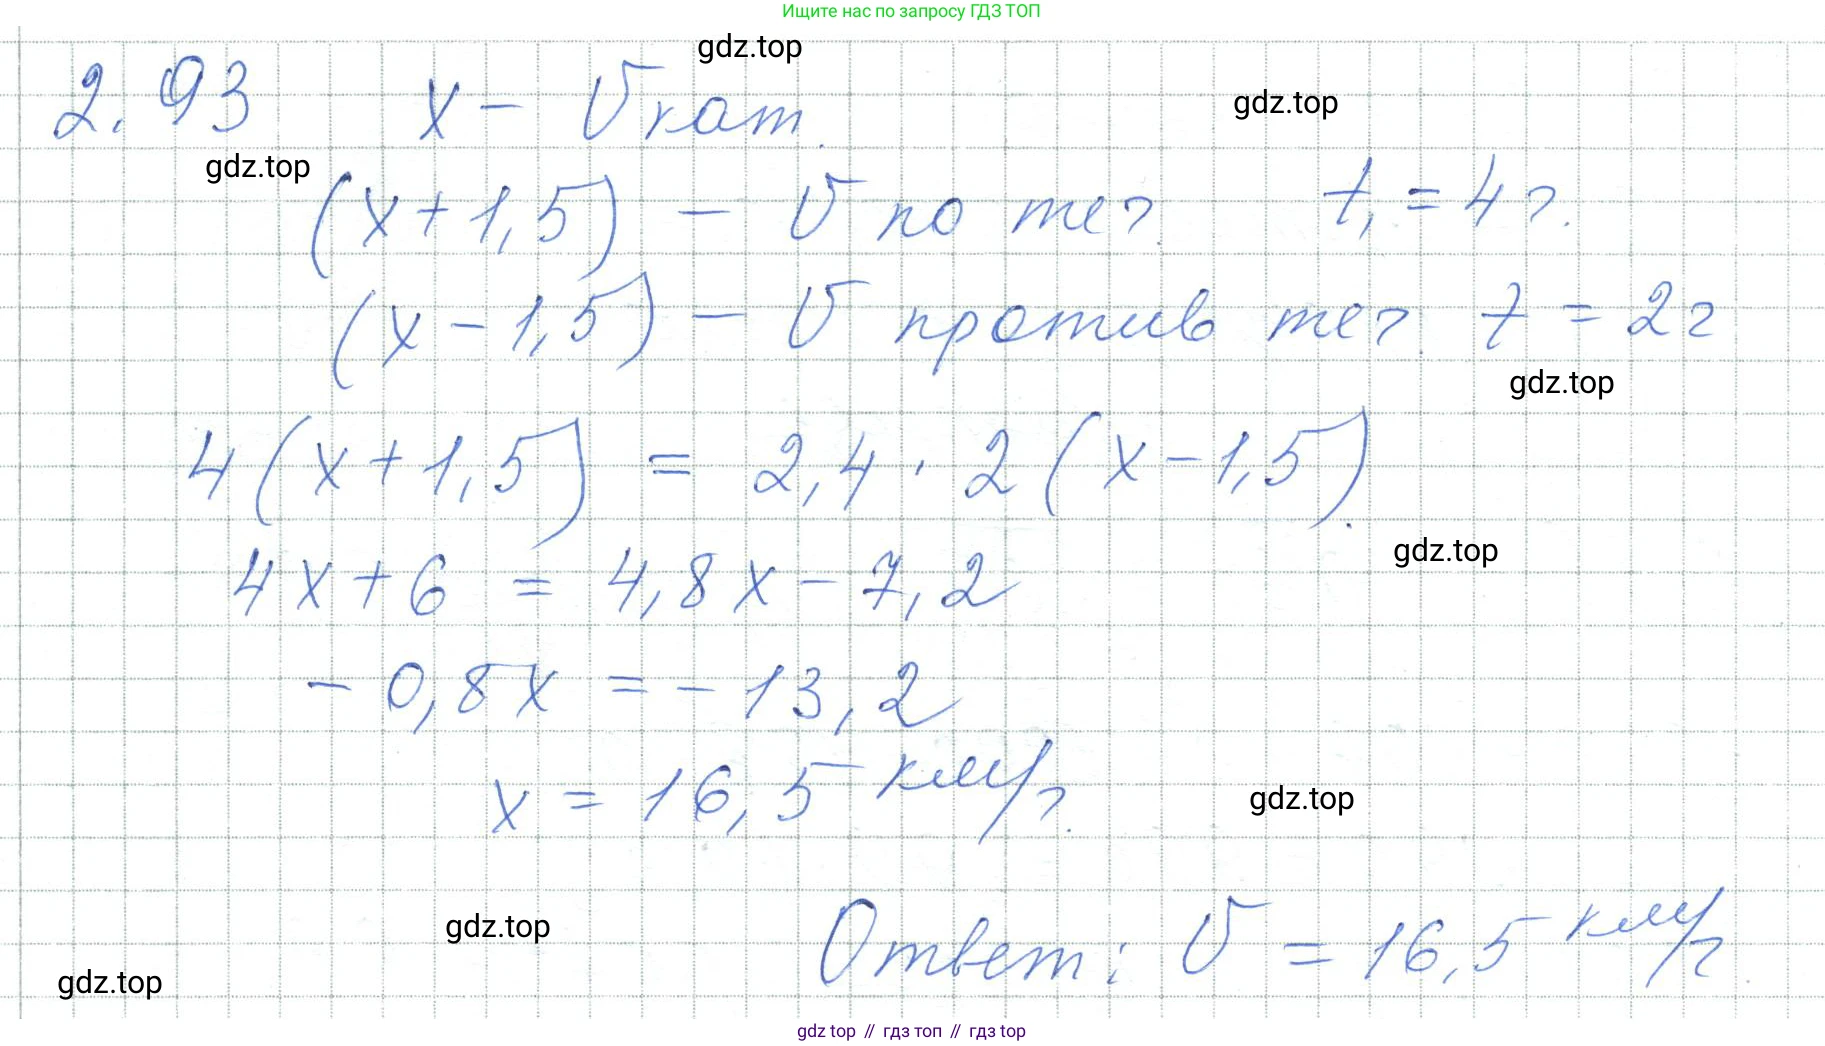 Ищите нас по запросу ГДЗ ТОП
gdz.top
2.93 x – V кат.
gdz.top
gdz.top
(x+1,5) – V по теч. t₁ = 4 ч.
(x – 1,5) – V против теч. t = 2 ч
gdz.top
4(x+1,5) = 2,4 · 2(x – 1,5)
gdz.top
4x + 6 = 4,8x – 7,2
– 0,8x = – 13,2
x = 16,5 км/ч.
gdz.top
gdz.top
Ответ: V = 16,5 км/ч.
gdz.top
gdz top // гдз топ // гдз top